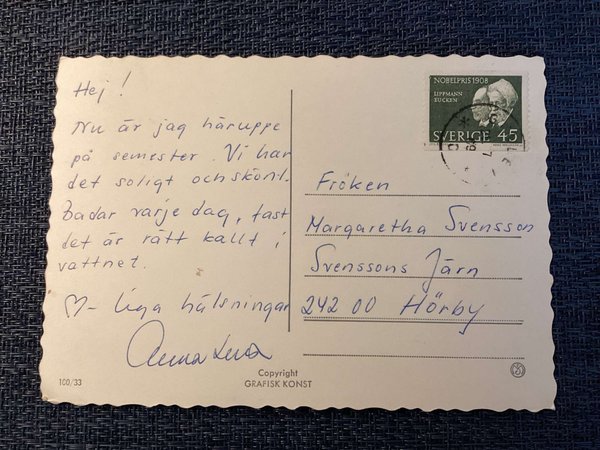 Hej!
Nu är jag häruppe
på semester. Vi har
det soligt och skönt.
Badar varje dag, fast
det är rätt kallt i
vattnet.
♡-liga hälsningar
Anna Lena
100/33
Copyright
GRAFISK KONST
NOBELPRIS 1908
LIPPMANN
EUCKEN
SVERIGE 45
Fröken
Margaretha Svensson
Svenssons Järn
242 00 Hörby